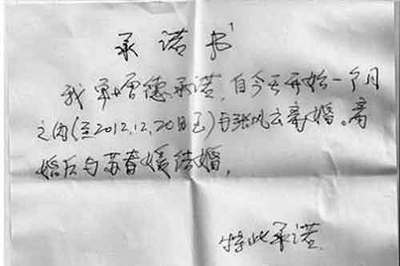 承诺书
我单增德承诺,自今天开始一个月
之内(至2012.12.20日止)与张凤云离婚。离
婚后与苏春媛结婚。
特此承诺